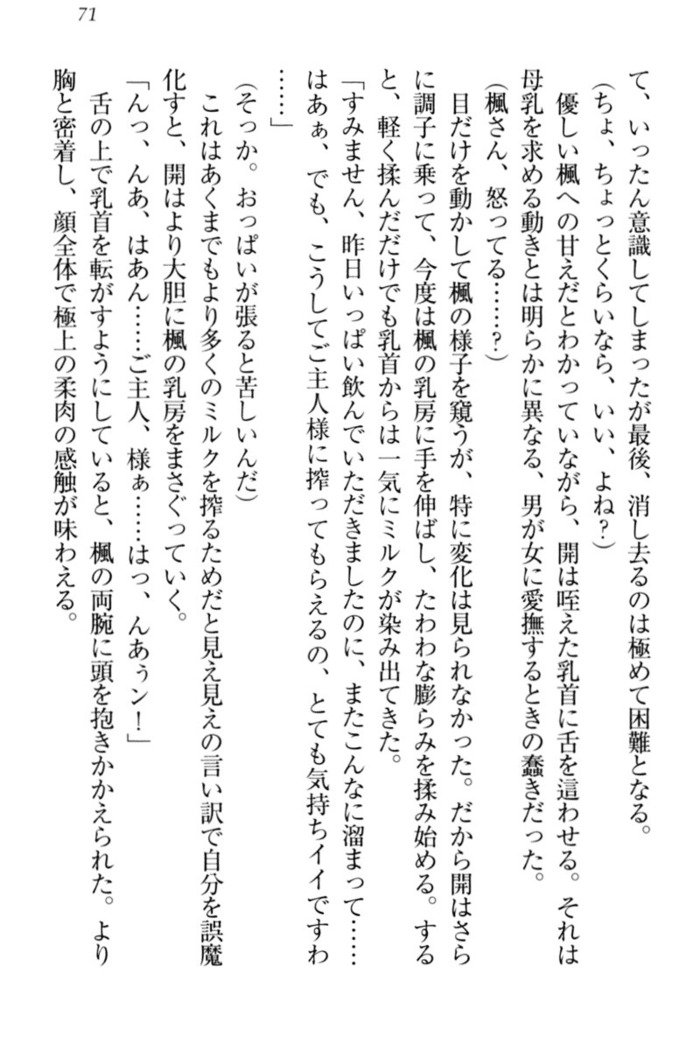 71
て、いったん意識してしまったが最後、消し去るのは極めて困難となる。
(ちょ、ちょっとくらいなら、いい、よね?)
優しい楓への甘えだとわかっていながら、開は咥えた乳首に舌を這わせる。それは
母乳を求める動きとは明らかに異なる、男が女に愛撫するときの蠢きだった。
(楓さん、怒ってる……?)
目だけを動かして楓の様子を窺うが、特に変化は見られなかった。だから開はさら
に調子に乗って、今度は楓の乳房に手を伸ばし、たわわな膨らみを揉み始める。する
と、軽く揉んだだけでも乳首からは一気にミルクが染み出てきた。
「すみません、昨日いっぱい飲んでいただきましたのに、またこんなに溜まって……
はあぁ、でも、こうしてご主人様に搾ってもらえるの、とても気持ちイイですわ
……」
(そっか。おっぱいが張ると苦しいんだ)
これはあくまでもより多くのミルクを搾るためだと見え見えの言い訳で自分を誤魔
化すと、開はより大胆に楓の乳房をまさぐっていく。
「んっ、んあ、はあん……ご主人、様ぁ……はっ、んあぅン!」
舌の上で乳首を転がすようにしていると、楓の両腕に頭を抱きかかえられた。より
胸と密着し、顔全体で極上の柔肉の感触が味わえる。